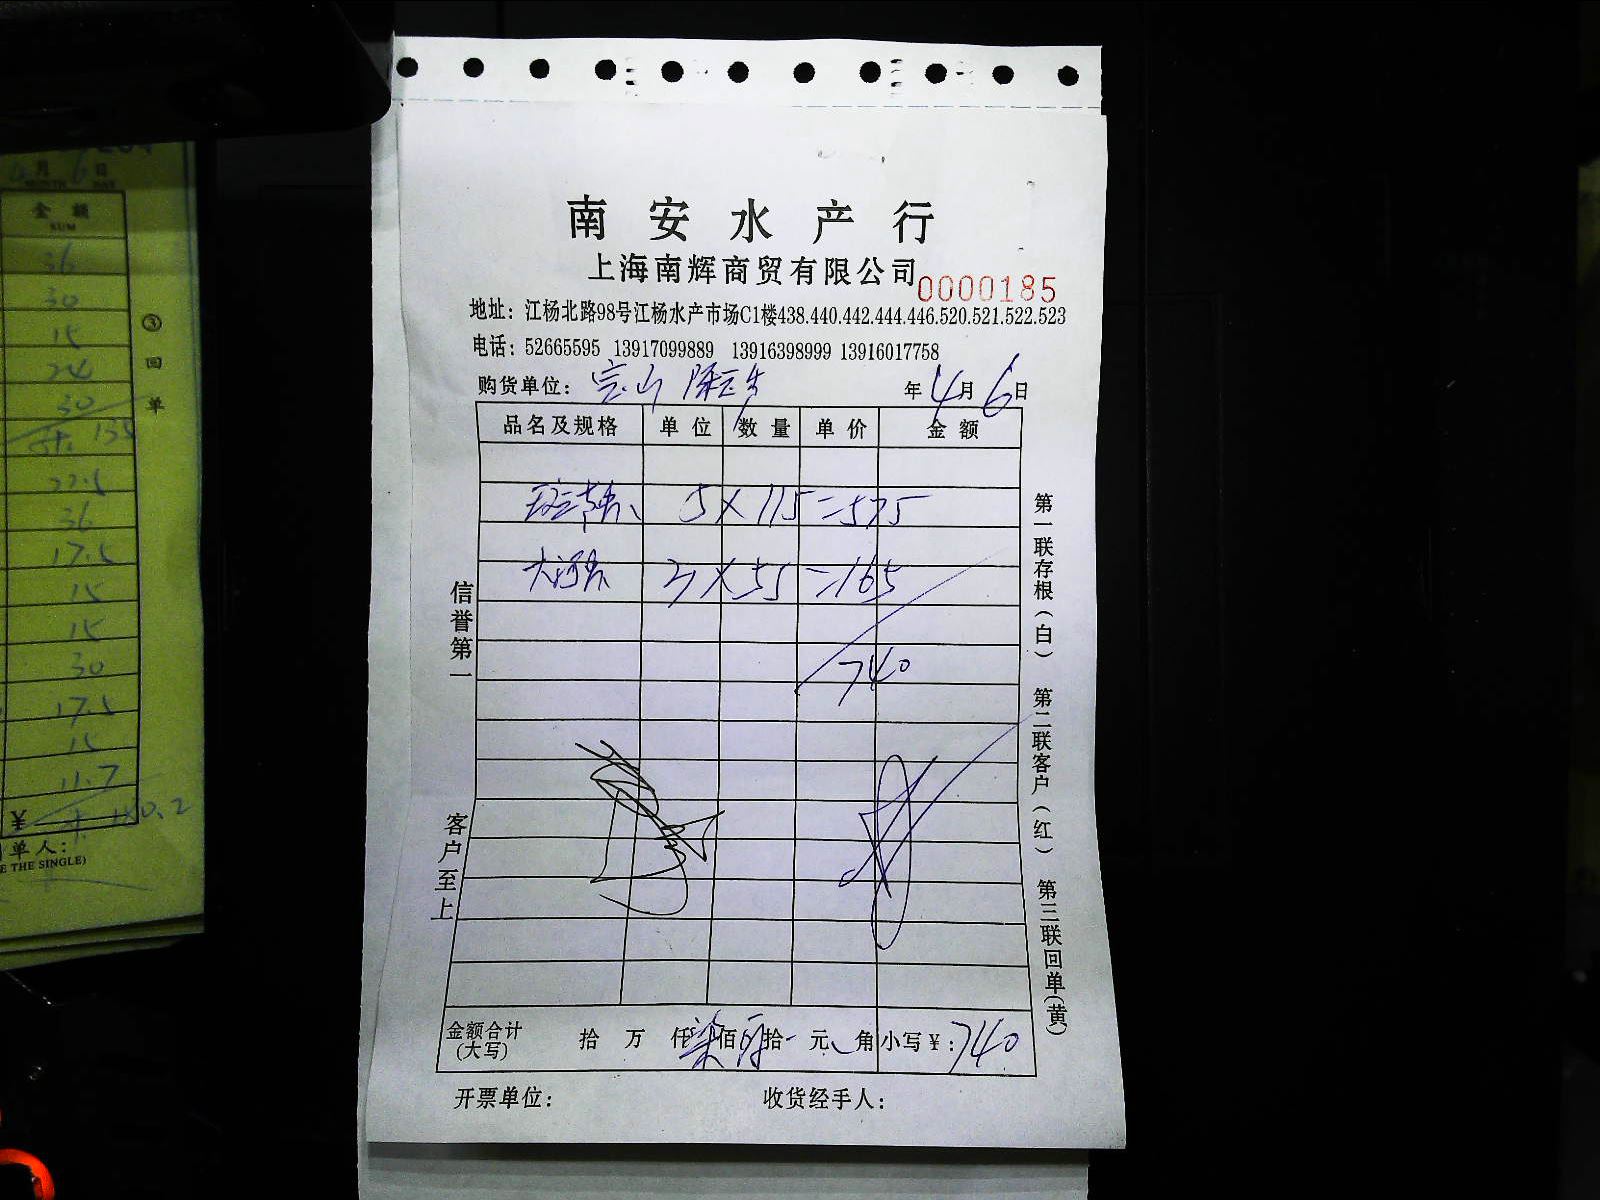 南安水产行
上海南辉商贸有限公司 0000185
地址：江杨北路98号江杨水产市场C1楼438.440.442.444.446.520.521.522.523
电话：52665595 13917099889 13916398999 13916017758
购货单位：宝山 年4月6日
品名及规格 单位 数量 单价 金额
5×115=575
3×55=165
740
金额合计(大写) 拾 万 仟 柒佰 拾 元 角 小写¥：740
开票单位： 收货经手人：
信誉第一
客户至上
第一联存根(白) 第二联客户(红) 第三联回单(黄)
4月6日
MONTH DAY
金额
SUM
36
30
15
24
30
135
22.5
36
17.5
15
15
30
17.5
15
11.7
¥
单人：
E THE SINGLE)
③回单